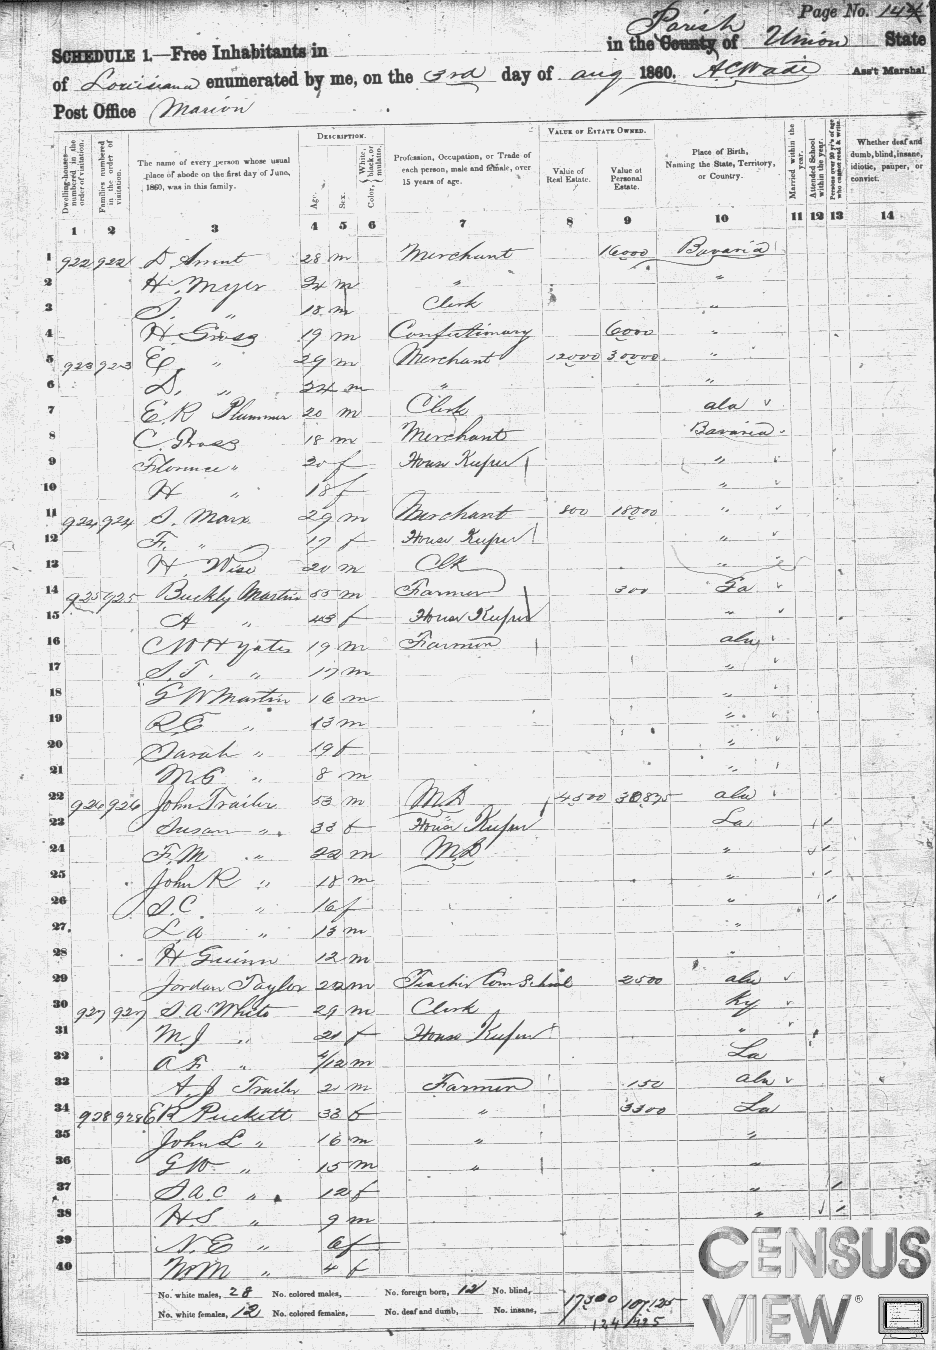 Page No. 14
SCHEDULE 1.—Free Inhabitants in in the County Parish of Union State
of Louisiana enumerated by me, on the 3rd day of aug 1860. A C Wade Ass't Marshal
Post Office Marion
Dwelling-houses— numbered in the order of visitation.
Families numbered in the order of visitation.
The name of every person whose usual place of abode on the first day of June, 1860, was in this family.
DESCRIPTION.
Age.
Sex.
Color, White, black, or mulatto.
Profession, Occupation, or Trade of each person, male and female, over 15 years of age.
VALUE OF ESTATE OWNED.
Value of Real Estate.
Value of Personal Estate.
Place of Birth, Naming the State, Territory, or Country.
Married within the year.
Attended School within the year.
Persons over 20 y'rs of age who cannot read & write.
Whether deaf and dumb, blind, insane, idiotic, pauper, or convict.
1 2 3 4 5 6 7 8 9 10 11 12 13 14
1 922 922 D 28 m Merchant 16000 Bavaria
2 H. Myer 24 m " "
3 S. " 18 m Clerk "
4 H. Gross 19 m Confectionary 6000 "
5 923 923 E " 29 m Merchant 12000 30000 "
6 D. " 24 m " "
7 E. R Plummer 20 m Clerk ala
8 C. Gross 18 m Merchant Bavaria
9 Florence " 20 f House Keeper "
10 H " 18 f "
11 924 924 S. Marx 29 m Merchant 800 18000 "
12 F. " 17 f House Keeper "
13 H. Wise 20 m Clk "
14 925 925 Buckly Martin 55 m Farmer 300 Ga
15 A " 43 f House Keeper "
16 C W H Yates 19 m Farmer ala
17 S. T. " 17 m "
18 G W Martin 16 m "
19 R E " 13 m "
20 Sarah " 19 f "
21 M. C " 8 m "
22 926 926 John Trailer 53 m M D 4500 30875 ala
23 Susan " 33 f House Keeper La
24 F. M " 22 m M D "
25 John R " 18 m "
26 S. C " 16 f "
27 L. a " 13 m "
28 H Guinn 12 m "
29 Jordan Taylor 22 m Teacher Com School 2500 ala
30 927 927 S. A. White 29 m Clerk Ky
31 M. J " 21 f House Keeper "
32 a F. " /12 m La
33 A. J Trailer 2 m Farmer 150 ala
34 928 928 E R Puckett 33 f " 3300 La
35 John L " 16 m " "
36 G W " 15 m " "
37 S. a. C " 12 f "
38 H S " 9 m "
39 N. E " 6 f
40 Wm M " 4 f
No. white males, 28 No. colored males, No. foreign born, 12 No. blind,
No. white females, 12 No. colored females, No. deaf and dumb, No. insane,
17300 107,125
CENSUS
VIEW®